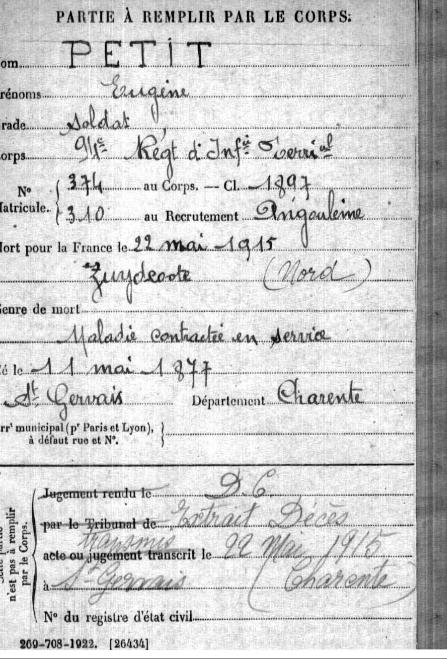 PARTIE À REMPLIR PAR LE CORPS.
om PETIT
rénoms Eugène
rade soldat
orps 94e Régt d'Infie Terrial
N° 374 au Corps. — Cl. 1897
atricule. 310 au Recrutement Angoulême
ort pour la France le 22 mai 1915
Zuydcoote (Nord)
enre de mort
Maladie contractée en service
é le 11 mai 1877
St Gervais Département Charente
rrt municipal (pr Paris et Lyon),
à défaut rue et N°.
n'est pas à remplir
par le Corps.
Jugement rendu le D.C.
par le Tribunal de Extrait Décès
transmis
acte ou jugement transcrit le 22 Mai 1915
à St Gervais (Charente)
N° du registre d'état civil
269-708-1922. [26434]